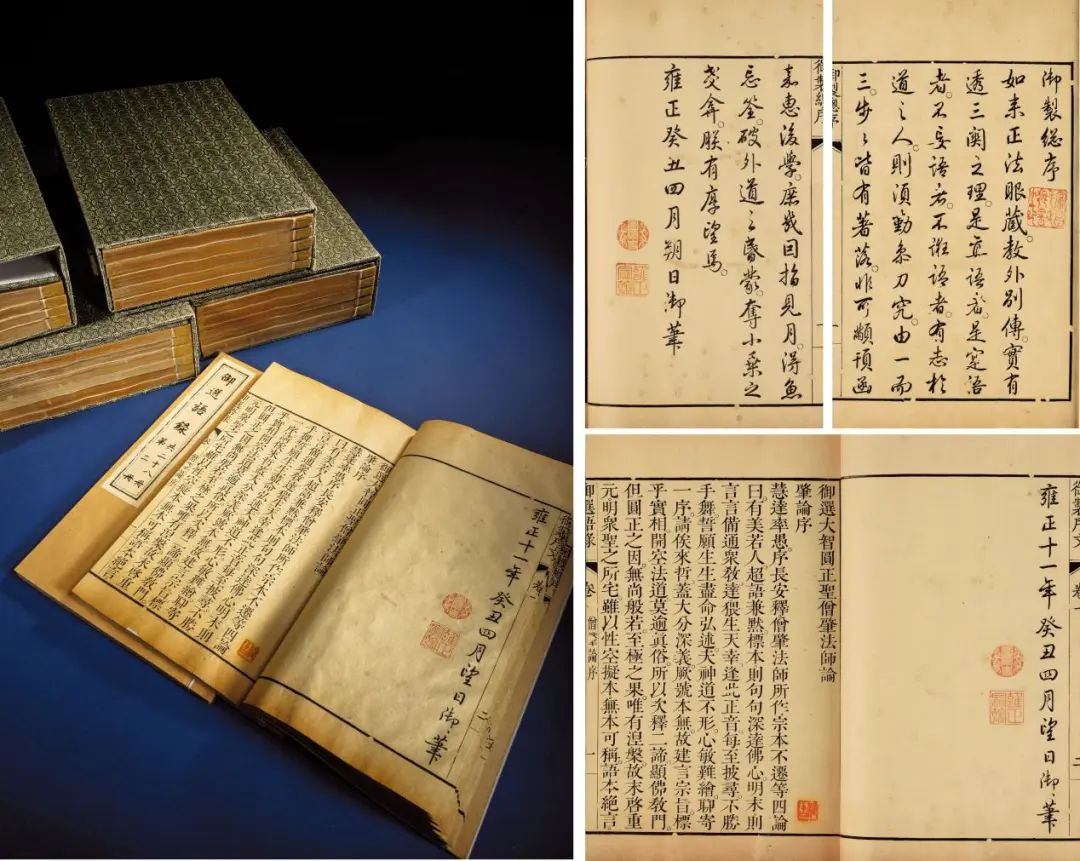 御選語錄
共二十八冊
第二冊
雍正十一年癸丑四月望日御筆
肇論序
御製総序
如来正法眼蔵。教外别傳。實有
透三関之理。是真語者。是寔語
者。不妄語者。不誑語者。有志於
道之人。則須勤参力究。由一而
三。步々皆有著落。非可顢頇函
御製總序
嘉惠後學。庶幾因指見月。得魚
忘筌。破外道之昏蒙。奪小乗之
戔弇。朕有厚望焉。
雍正癸丑四月朔日御筆
雍正十一年癸丑四月望日御筆
御選大智圓正聖僧肇法師論
肇論序
慧達率愚。序長安釋僧肇法師所作宗本不遷等四論
曰。有美若人。超語兼默。標本則句句深達佛心。明末則
言言備通衆教。達猥生天幸。逢此正音。每至披尋。不勝
手舞。誓願生生盡命弘述。夫神道不形。心敏難繪。聊寄
一序。請俟來哲。蓋大分深義。厥號本無。故建言宗旨。標
乎實相。開空法道。莫逾眞俗。所以次釋二諦。顯佛教門。
但圓正之因。無尚般若。至極之果。唯有涅槃。故末啓重
元。明衆聖之所宅。雖以性空擬本。無本可稱。語本絕言
御選語錄